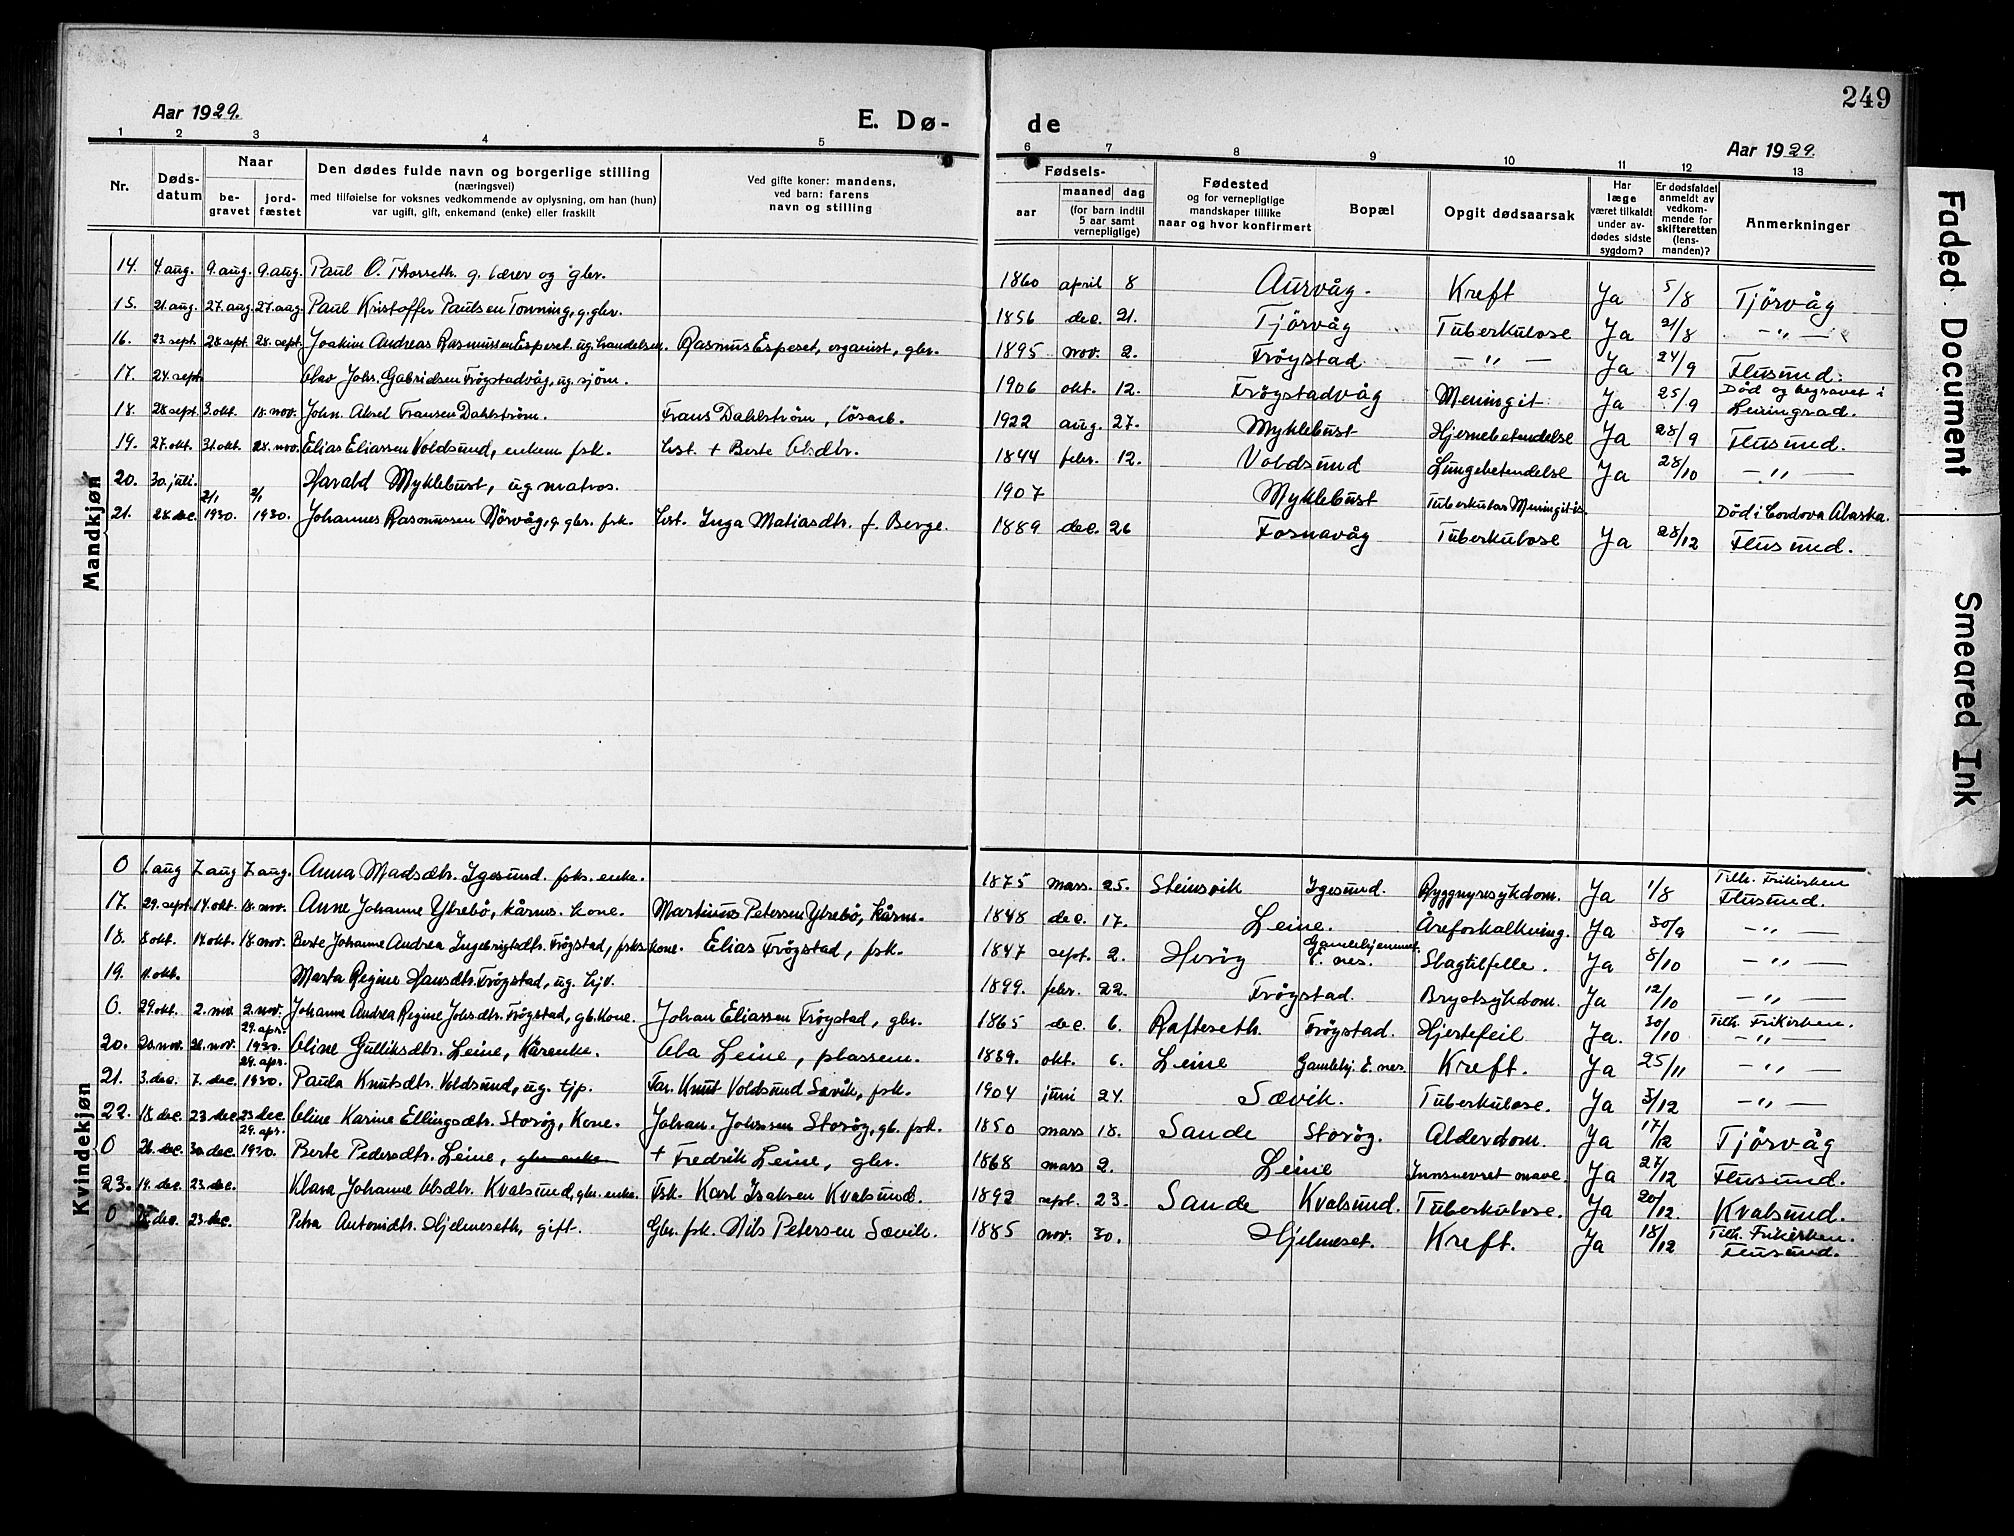 249
Aar 1929.
E. Dø-
de
Aar 1929.
1 2 3 4 5 6 7 8 9 10 11 12 13
Nr.
Døds-datum
Naar
be-gravet
jord-fæstet
Den dødes fulde navn og borgerlige stilling
(næringsvei)
med tilføielse for voksnes vedkommende av oplysning, om han (hun)
var ugift, gift, enkemand (enke) eller fraskilt
Ved gifte koner: mandens,
ved barn: farens
navn og stilling
Fødsels-
aar
maaned
dag
(for barn indtil
5 aar samt
vernepligtige)
Fødested
og for vernepligtige
mandskaper tillike
naar og hvor konfirmert
Bopæl
Opgit dødsaarsak
Har
læge
været tilkaldt
under av-
dødes sidste
sygdom?
Er dødsfaldet
anmeldt av
vedkom-
mende for
skifteretten
(lens-
manden)?
Anmerkninger
Mandkjøn
14. 4 aug. 9. aug. 9. aug. Paul O. Thorseth. g. lærer og gbr. 1860 april 8 Aurvåg. Kreft Ja 5/8 Tjörvåg
15. 21. aug. 27. aug. 27. aug. Paul Kristoffer Paulsen Tonning, g. gbr. 1856 dec. 21. Tjörvåg Tuberkulose Ja 21/8 — „ —
16. 23 sept. 28 sept. 28. sept. Joakim Andreas Rasmussen Espeset. ug. handelsm. Rasmus Espeset, organist, gbr. 1895 nov. 2. Fröystad — „ — Ja 24/9 Flusund.
17. 24. sept. Olav Johs. Gabrielsen Fröystadvåg, ug. sjöm. 1906 okt. 12. Fröystadvåg Meningit Ja 25/9 Död og begravet i Leningrad.
18. 28 sept. 3. okt. 18. nov. John. Aksel Fransen Dahlström. Frans Dahlström, lösarb. 1922 aug. 27. Myklebust Hjernebetendelse Ja 28/9 Flusund.
19. 27. okt. 31. okt. 28. nov. Elias Eliassen Voldsund, enkem. fsk. Last. + Berte Olsdtr. 1844 febr. 12. Voldsund Lungebetendelse Ja 28/10 — „ —
20. 30. juli. Harald Myklebust, ug. matros. 1907 Myklebust Tuberkuløs Meningitis. Död i Cordova Alaska.
21. 28 dec. 2/1 1930. 2/1 1930. Johannes Rasmussen Nörvåg, g. gbr. fsk. Last. Inga Matiasdtr. f. Berge. 1889 dec. 26 Fosnavåg Tuberkulose Ja 28/12 Flusund.
Kvindekjøn
0 1. aug 7. aug 7. aug. Anna Madsdtr. Igesund. fsks. enke. 1875 mars. 25. Steinsvik Igesund. Ryggnyresykdom. Ja 1/8 Tilh. Frikirken Flusund.
17. 29. sept. 14. okt. 18. nov. Anne Johanne Ytrebö, kårms. kone. Martinus Petersen Ytrebö, kårm. 1848 dec. 17. Leine. Åreforkalkning. Ja 30/9 — „ —
18. 8 okt. 14 okt. 18 nov. Berte Johanne Andrea Ingebrigtsdtr. Fröystad, fsks. kone. Elias Fröystad, fsk. 1847 sept. 2. Heröy Gamlehjemmet E. nes. Slagtilfelle. Ja 8/10 — „ —
19. 11. okt. Marta Regine Hansdtr. Fröystad, ug. hjv. 1899. febr. 22. Fröystad. Brystsykdom. Ja 12/10 — „ —
0. 29. okt. 2. nov. 2. nov. Johanne Andrea Regine Johsdtr. Fröystad, gb. kone. Johan Eliassen Fröystad, gbr. 1865 dec. 6. Rafteseth. Fröystad. Hjertefeil Ja. 30/10 Tilh. Frikirken. — „ —
20. 20. nov. 26. nov. 29. apr. 1930. Oline Gulliksdtr. Leine, Kårenke. Ola Leine, plassem. 1839. okt. 6. Leine Gamlehj. E. nes. Kreft. Ja 25/11 — „ —
21. 3. dec. 7. dec. 29. apr. 1930. Paula Knutsdtr. Voldsund, ug. tjp. Far. Knut Voldsund Sævik, fsk. 1904 juni 24. Sævik. Tuberkulose. Ja 3/12 — „ —
22. 18 dec. 23 dec. 23 dec. Oline Karine Ellingsdtr. Storöy, Kone. Johan. Johnsen Storöy, gb. fsk. 1850 mars 18. Sande Storöy. Alderdom. Ja 17/2 Tjörvåg
0 26. dec. 30. dec. 29. apr. 1930. Berte Pedersdtr. Leine, gbr. enke + Fredrik Leine, gbr. 1868 mars 2. Leine Innsnevret mave. Ja 27/12 Flusund.
23. 19. dec. 23. dec. Klara Johanne Olsdtr. Kvalsund, gbr. enke. Fsk. Karl Isaksen Kvalsund. 1892 sept. 23. Sande Kvalsund. Tuberkulose. Ja 20/12 Kvalsund.
0 dec. 23 dec. Petra Antonidtr. Hjelmeseth, gift. Gbr. fsk. Nils Petersen Sævik. 1885 nov. 30. Hjelmeset. Kreft. Ja 18/12 Tilh. Frikirken. Flusund.
Faded Document
Smeared Ink